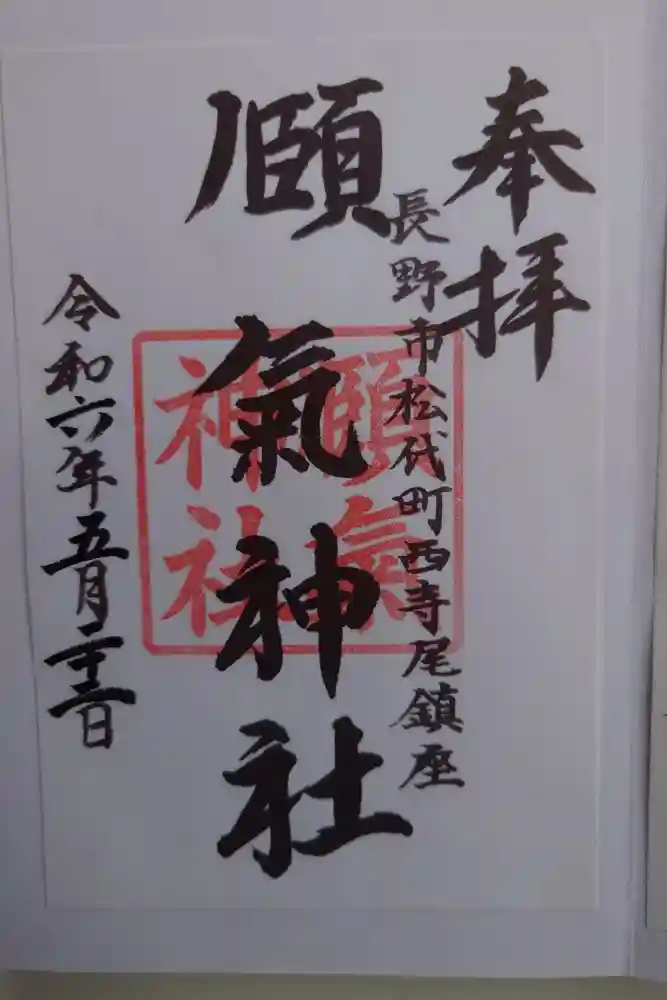 奉拝
長野市松代町西寺尾鎮座
頤氣神社
頤氣
神社
令和六年五月二十三日